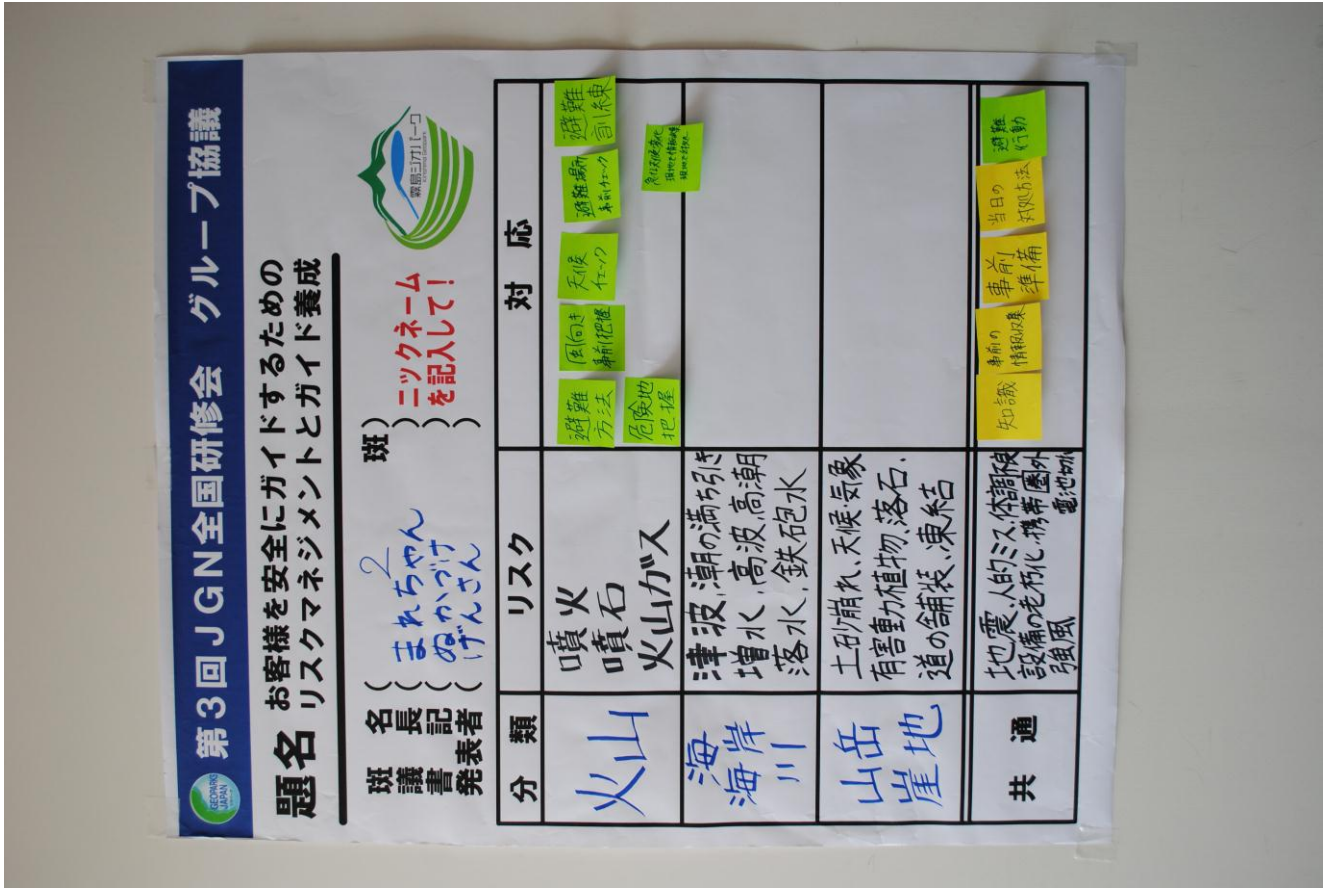 第3回JGN全国研修会 グループ協議
GEOPARKS
JAPAN
題名 お客様を安全にガイドするための
リスクマネジメントとガイド養成
班名 ( 2 班)
議長 ( まれちゃん )
書記 ( ぬかづけ )
発表者 ( げんさん )
ニックネーム
を記入して!
霧島ジオパーク
分類 リスク 対応
火山
噴火
噴石
火山ガス
避難
方法
風向き
事前把握
天候
チェック
避難場所
事前チェック
避難
訓練
危険地
把握
海
海岸
川
津波、潮の満ち引き
増水、高波、高潮
落水、鉄砲水
山岳
崖地
土砂崩れ、天候・気象
有害動力植物、落石、
道の舗装、凍結
共通
地震、人的ミス、体調不良
設備の老朽化、携帯圏外
強風 電池切れ
知識
事前の
情報収集
事前
準備
当日の
対処方法
避難
行動